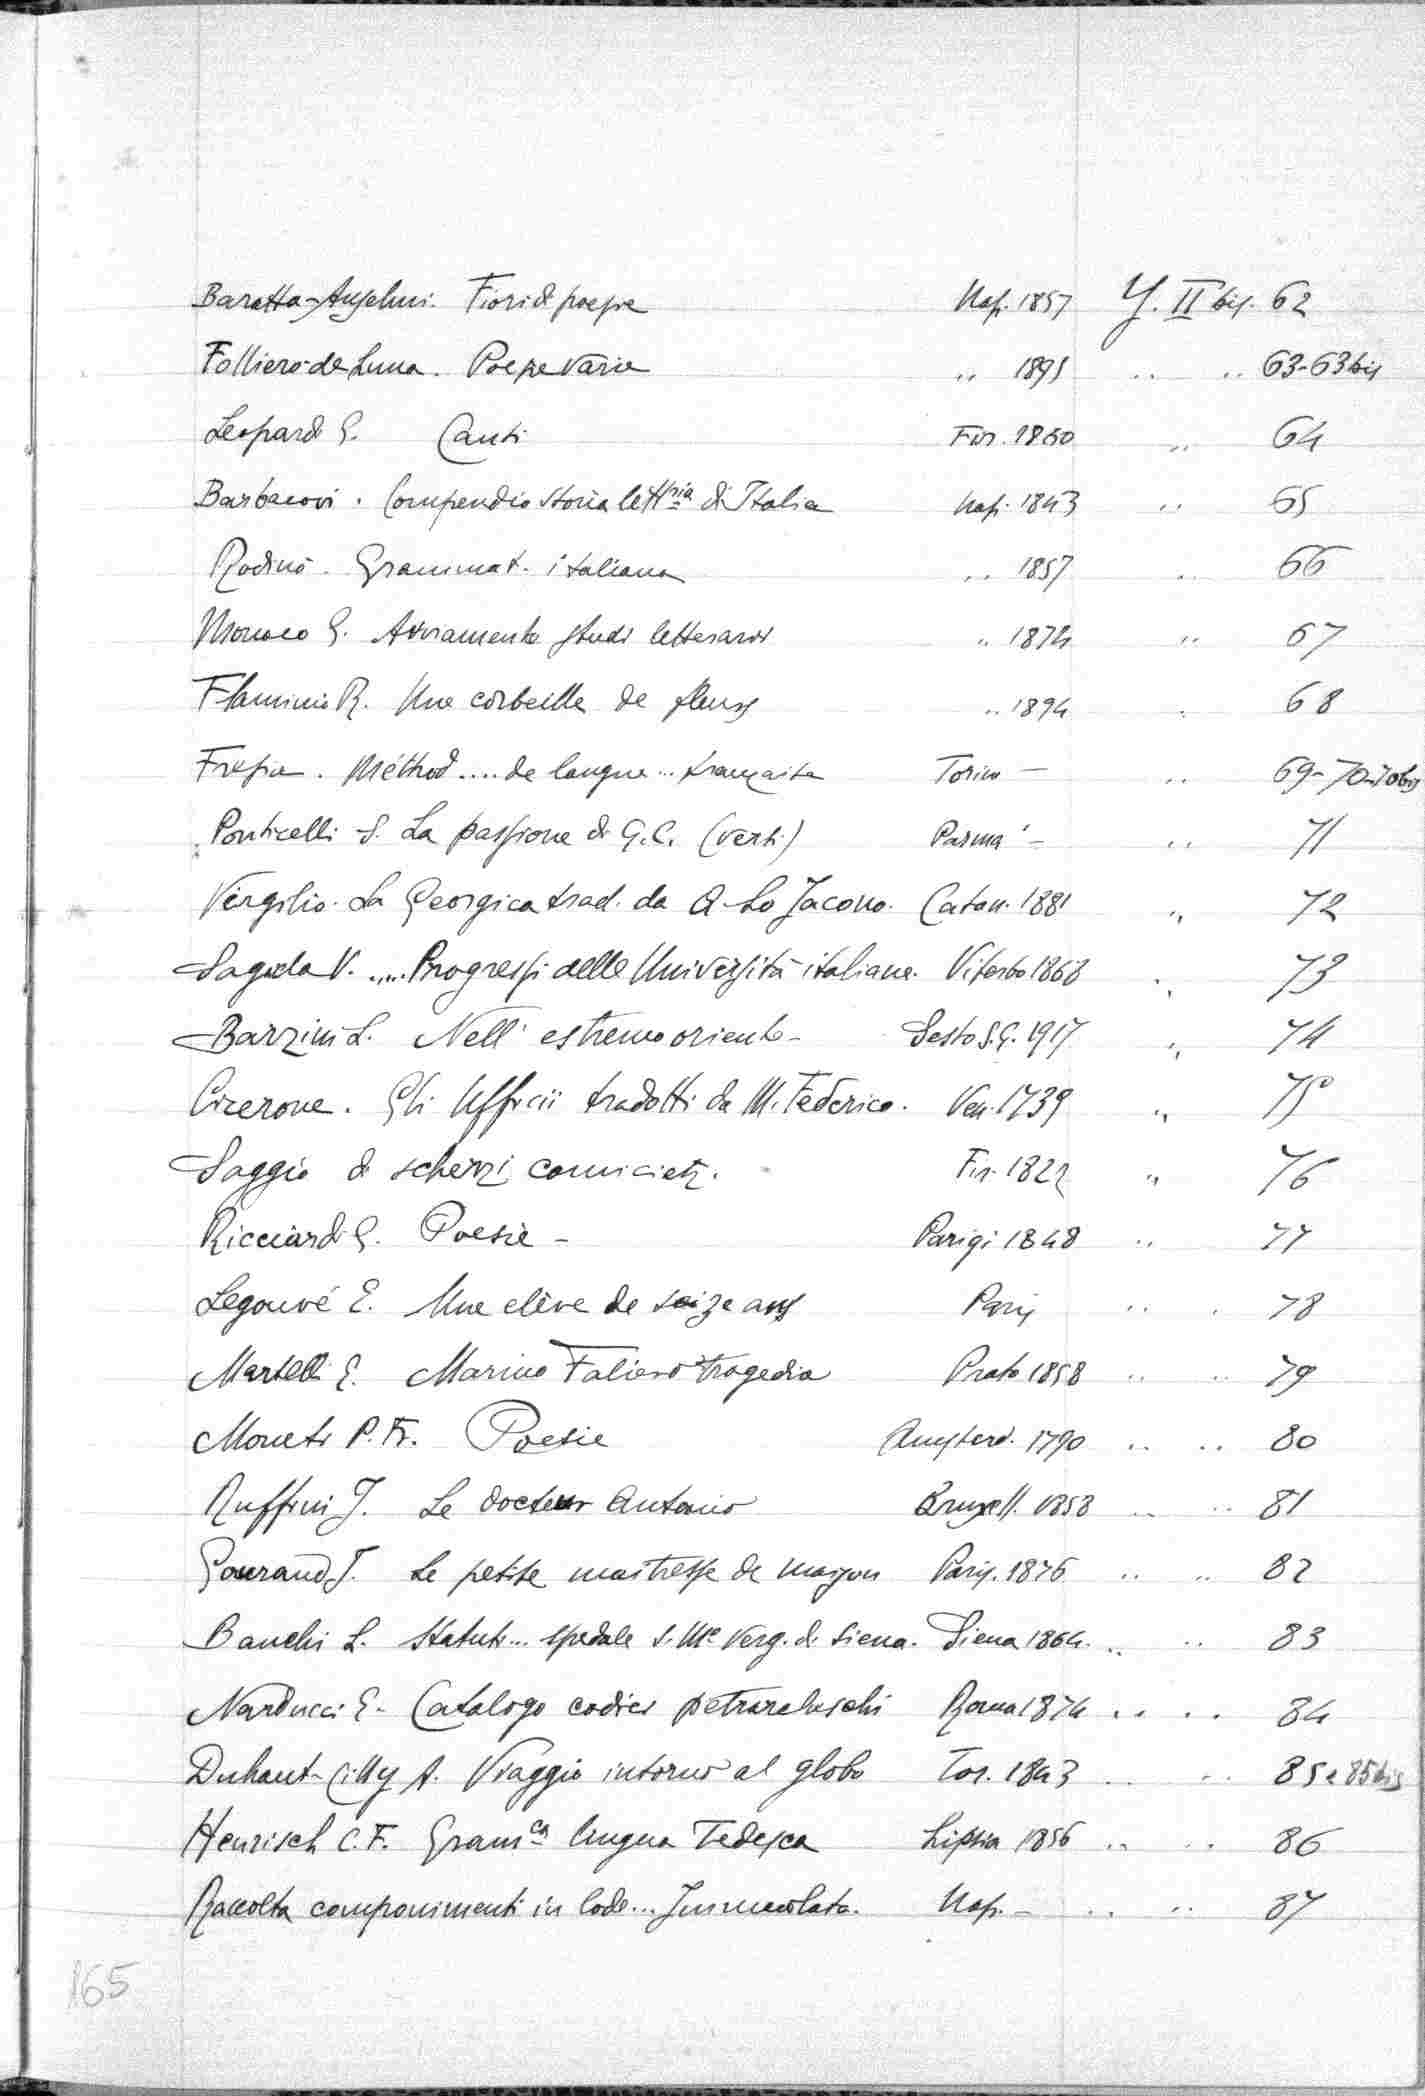 Baratta-Anselmi. Fiori di poesie Nap. 1857 Y. II bis. 62
Folliero-de Luna. Poesie varie " 1895 " " 63-63 bis
Leopardi G. Canti Fir. 1860 " 64
Barbacovi. Compendio storia lettria di Italia Nap. 1843 " 65
Rodinò. Grammat. italiana " 1857 " 66
Monaco G. Avviamento studi letterari " 1874 " 67
Flaminio R. Une corbeille de fleurs " 1894 " 68
Méthod.... de langue... française Torino — " 69-70-70 bis
Ponticelli S. La passione di G. C. (versi) Parma — " 71
Virgilio. La Georgica trad. da A. Lo Jacono. Catan. 1881 " 72
V. .... Progressi delle Università italiane. Viterbo 1868 " 73
Barzini L. Nell' estremo oriente — Sesto S. G. 1917 " 74
Cicerone. Gli Ufficii tradotti da M. Federico. Ven. 1739 " 75
Saggio di scherzi comici etc. Fir. 1822 " 76
Ricciardi G. Poesie — Parigi 1848 " 77
Legouvé E. Une elève de seize ans Paris " " 78
Martelli E. Marino Faliero tragedia Prato 1858 " " 79
Moneti P. Fr. Poesie Amsterd. 1790 " " 80
Ruffini J. Le docteur Antonio Bruxell. 1858 " " 81
Gouraud J. La petite maitresse de maison Paris. 1876 " " 82
Banchi L. Statuti... spedale S. Ma Verg. di Siena. Siena 1864. " " 83
Narducci E. Catalogo codici petrarcheschi Roma 1874 " " 84
Duhaut-Cilly A. Viaggio intorno al globo Tor. 1843 " " 85 e 85 bis
Henrisch C. F. Gramca lingua Tedesca Lipsia 1856 " " 86
Raccolta componimenti in lode... Immacolata. Nap. — " " 87
165